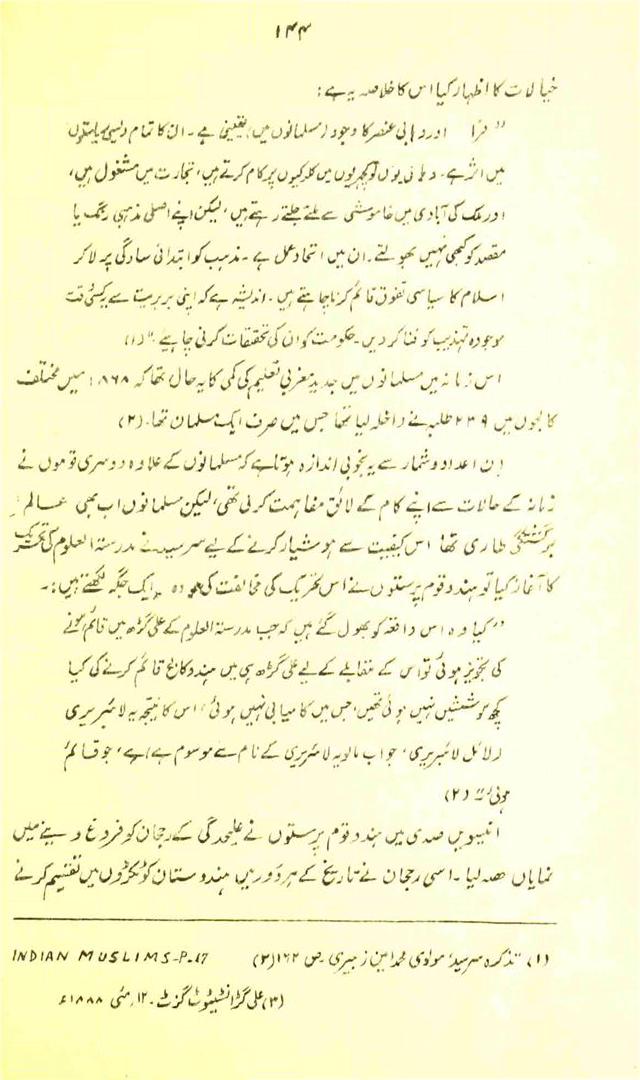 ۱۴۴
خیالات کا اظہار کیا اس کا خلاصہ یہ ہے:
اور وہابی عنصر کا وجود (مسلمانوں میں) یقینی ہے۔ ان کا تمام دلیسی ریاستوں
میں اثر ہے۔ وہابی یوں تو کچہریوں میں کلرکیوں پر کام کرتے ہیں، تجارت میں مشغول ہیں،
اور ملک کی آبادی میں خاموشی سے ملتے جلتے رہتے ہیں، لیکن اپنے اصلی مذہبی رنگ یا
مقصد کو کبھی نہیں بھولتے۔ ان میں اتحاد عمل ہے۔ مذہب کو ابتدائی سادگی پر لاکر
اسلام کا سیاسی تفوق قائم کرنا چاہتے ہیں۔ اندیشہ ہے کہ اپنی بربریت سے یہ کسی وقت
موجودہ تہذیب کو فنا کر دیں۔ حکومت کو ان کی تحقیقات کرنی چاہیے۔" (۱)
اس زمانہ میں مسلمانوں میں جدید مغربی تعلیم کی کمی کا یہ حال تھا کہ ۱۸۶۸ء میں مختلف
کالجوں میں ۲۳۹ طلبہ نے داخلہ لیا تھا جس میں صرف ایک مسلمان تھا۔ (۲)
اِن اعداد و شمار سے یہ بخوبی اندازہ ہوتا ہے کہ مسلمانوں کے علاوہ دوسری قوموں نے
زمانہ کے حالات سے اپنے کام کے لائق مفاہمت کرلی تھی، لیکن مسلمانوں اب بھی عالم
طاری تھا اس کیفیت سے ہوشیار کرنے کے لیے سرسید نے مدرستہ العلوم کی تحریک
کا آغاز کیا تو ہندو قوم پرستوں نے اس تحریک کی مخالفت کی وہ ایک جگہ لکھتے ہیں:۔
"کیا وہ اس واقعہ کو بھول گئے ہیں کہ جب مدرستہ العلوم کے علی گڑھ میں قائم ہونے
کی تجویز ہوئی تو اس کے مقابلے کے لیے علی گڑھ ہی میں ہندو کالج قائم کرنے کی کیا
کچھ کوششیں نہیں ہوئی تھیں، جس میں کامیابی نہیں ہوئی، اس کا نتیجہ یہ لائبریری
(لائل لائبریری، جو اب مالویہ لائبریری کے نام سے موسوم ہے) ہے، جو قائم
ہوئی" (۲)
انیسویں صدی میں ہندو قوم پرستوں نے علیحدگی کے رجحان کو فروغ دینے میں
نمایاں حصہ لیا۔ اسی رجحان نے تاریخ کے ہر دور میں ہندوستان کو ٹکڑوں میں تقسیم کرنے
(۱) تذکرہ سرسید، مولوی محمد امین زبیری۔ ص ۱۶۲ (۲) INDIAN MUSLIMS-P-17
(۳) علی گڑھ انسٹیٹیوٹ گزٹ۔ ۱۲، مئی ۱۸۸۸ء